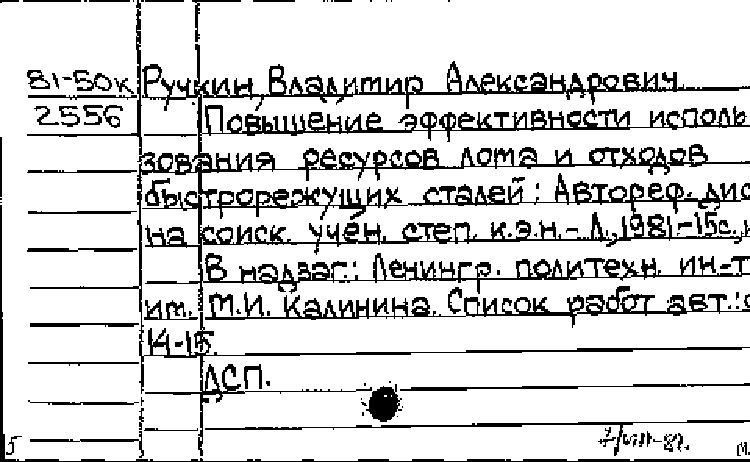 81-50к Ручкин, Владимир Александрович
2556 Повышение эффективности исполь
зования ресурсов лома и отходов
быстрорежущих сталей: Автореф. дис
на соиск. учён. степ. к.э.н. - Л., 1981. - 15с.,
В надзаг.: Ленингр. политехн. ин-т
им. М.И. Калинина. Список работ авт.: с
14-15.
ДСП.
5